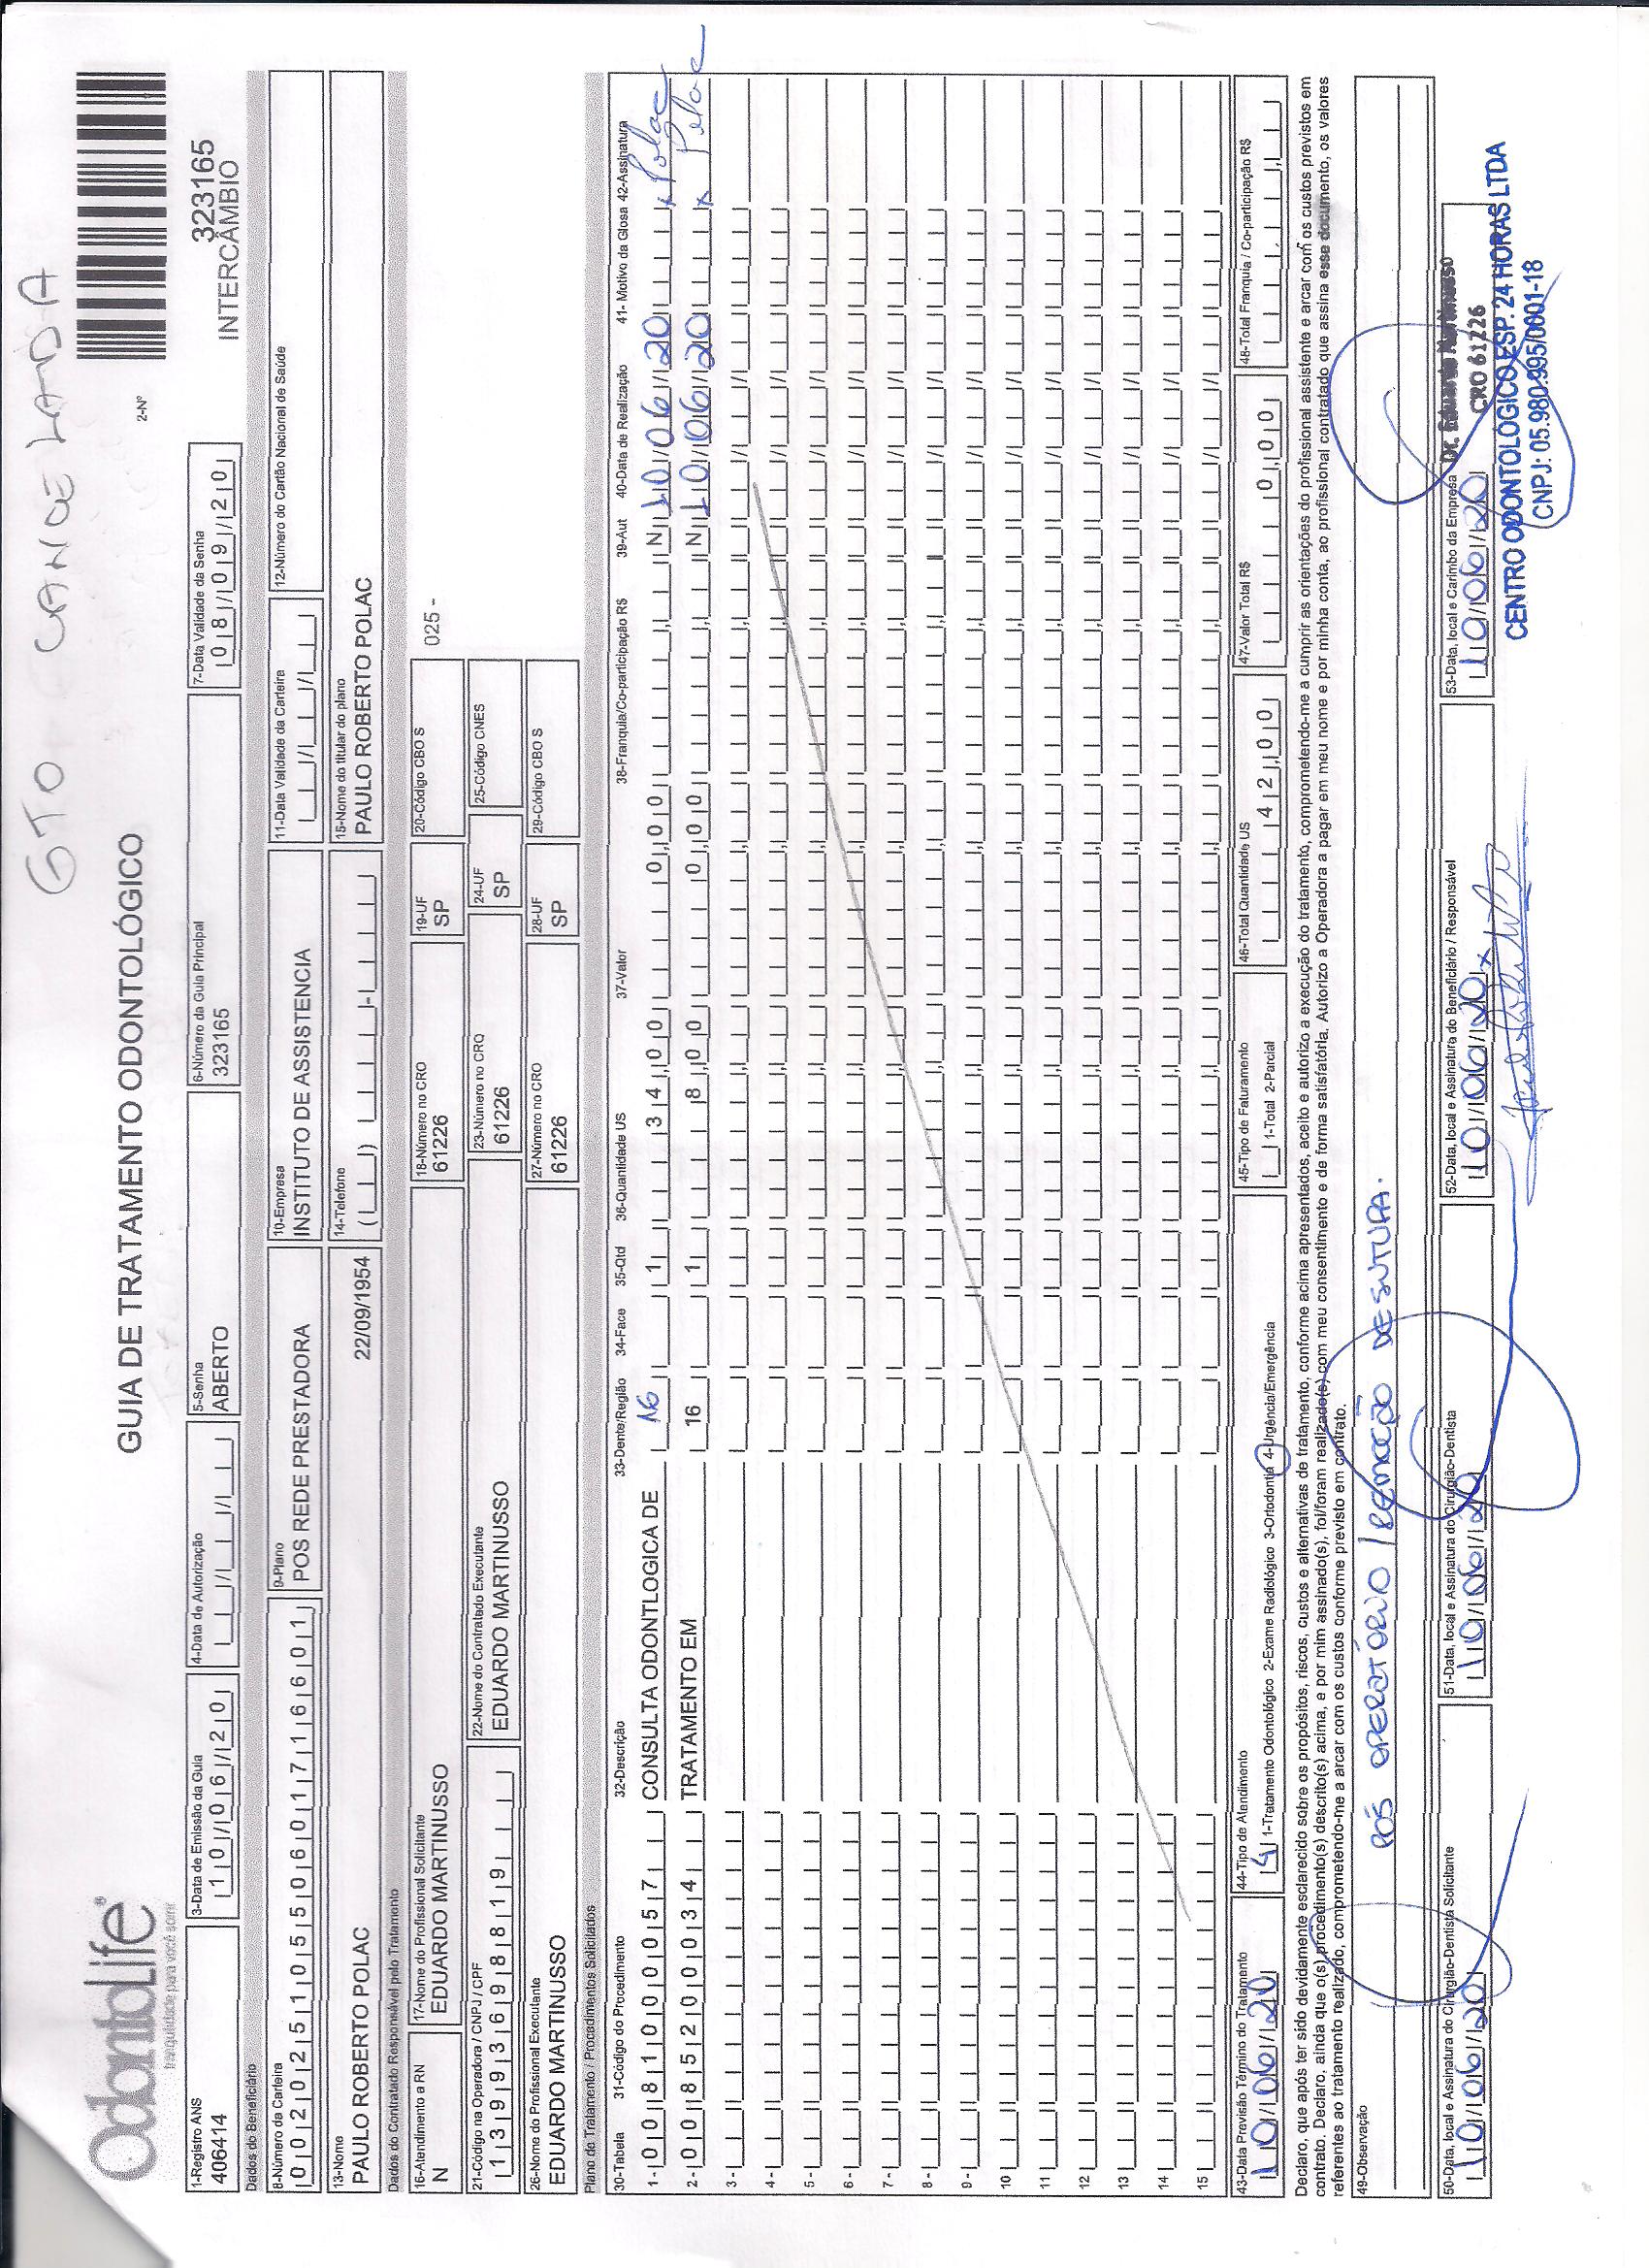 GTO CANCELADA
OdontoLife®
tranquilidade para você sorrir
GUIA DE TRATAMENTO ODONTOLÓGICO
2-Nº
323165
INTERCÂMBIO
1-Registro ANS 3-Data de Emissão da Guia 4-Data de Autorização 5-Senha 6-Número da Guia Principal 7-Data Validade da Senha
406414 10/06/20 ABERTO 323165 08/09/20
Dados do Beneficiário
8-Número da Carteira 9-Plano 10-Empresa 11-Data Validade da Carteira 12-Número do Cartão Nacional de Saúde
00202510550601716601 POS REDE PRESTADORA INSTITUTO DE ASSISTENCIA
13-Nome 14-Telefone 15-Nome do titular do plano
PAULO ROBERTO POLAC 22/09/1954 PAULO ROBERTO POLAC
Dados do Contratado Responsável pelo Tratamento
16-Atendimento a RN 17-Nome do Profissional Solicitante 18-Número no CRO 19-UF 20-Código CBO S
N EDUARDO MARTINUSSO 61226 SP 025 -
21-Código na Operadora / CNPJ / CPF 22-Nome do Contratado Executante 23-Número no CRO 24-UF 25-Código CNES
13993698819 EDUARDO MARTINUSSO 61226 SP
26-Nome do Profissional Executante 27-Número no CRO 28-UF 29-Código CBO S
EDUARDO MARTINUSSO 61226 SP
Plano de Tratamento / Procedimentos Solicitados
30-Tabela 31-Código do Procedimento 32-Descrição 33-Dente/Região 34-Face 35-Qtd 36-Quantidade US 37-Valor 38-Franquia/Co-participação R$ 39-Aut 40-Data de Realização 41- Motivo da Glosa 42-Assinatura
1- 00 81000057 CONSULTA ODONTLOGICA DE 16 1 34,00 0,00 N 10/06/20 x Polac
2- 00 85200034 TRATAMENTO EM 16 1 8,00 0,00 N 10/06/20 x Polac
3 -
4 -
5 -
6 -
7 -
8 -
9 -
10
11
12
13
14
15
43-Data Previsão Término do Tratamento 44-Tipo de Atendimento 45-Tipo de Faturamento 46-Total Quantidade US 47-Valor Total R$ 48-Total Franquia / Co-participação R$
10/06/20 4 1-Tratamento Odontológico 2-Exame Radiológico 3-Ortodontia 4-Urgência/Emergência 1-Total 2-Parcial 42,00 0,00
Declaro, que após ter sido devidamente esclarecido sobre os propósitos, riscos, custos e alternativas de tratamento, conforme acima apresentados, aceito e autorizo a execução do tratamento, comprometendo-me a cumprir as orientações do profissional assistente e arcar com os custos previstos em
contrato. Declaro, ainda que o(s) procedimento(s) descrito(s) acima, e por mim assinado(s), foi/foram realizado(s) com meu consentimento e de forma satisfatória. Autorizo a Operadora a pagar em meu nome e por minha conta, ao profissional contratado que assina esse documento, os valores
referentes ao tratamento realizado, comprometendo-me a arcar com os custos conforme previsto em contrato.
49-Observação
PÓS OPERATÓRIO / REMOÇÃO DE SUTURA.
50-Data, local e Assinatura do Cirurgião-Dentista Solicitante 51-Data, local e Assinatura do Cirurgião-Dentista 52-Data, local e Assinatura do Beneficiário / Responsável 53-Data, local e Carimbo da Empresa
10/06/20 10/06/20 10/06/20 x 10/06/20
Dr. Eduardo Martinusso
CRO 61226
CENTRO ODONTOLÓGICO ESP. 24 HORAS LTDA
CNPJ: 05.980.995/0001-18